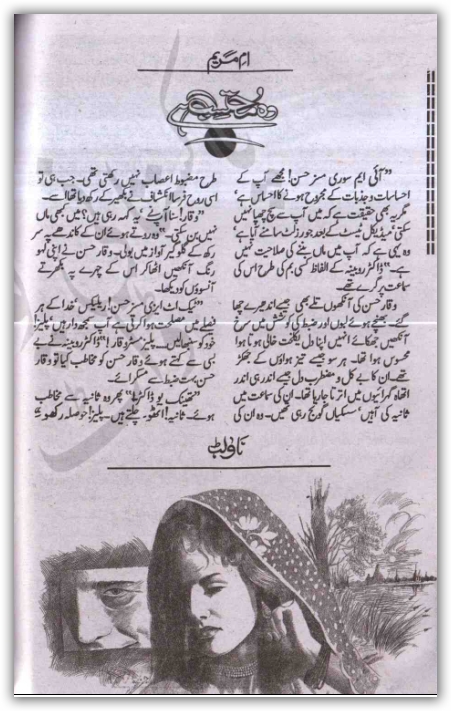 ام مریم
وہ محبت سی
”آئی ایم سوری مسز حسن! مجھے آپ کے
احساسات و جذبات کے مجروح ہونے کا احساس ہے‘
مگر یہ بھی حقیقت ہے کہ میں آپ سے سچ چھپا نہیں
سکتی‘ میڈیکل ٹیسٹ کے بعد جو رزلٹ سامنے آیا ہے‘
وہ یہی ہے کہ آپ میں ماں بننے کی صلاحیت نہیں
ہے۔“ ڈاکٹر روبینہ کے الفاظ کسی بم کی طرح اس کی
سماعت پر گرے تھے۔
وقار حسن کی آنکھوں تلے بھی جیسے اندھیرے چھا
گئے۔ بھنچے ہوئے لبوں اور ضبط کی کوشش میں سرخ
آنکھیں جھکائے انہیں اپنا دل یکلخت خالی ہوتا ہوا
محسوس ہوا تھا۔ ہر سو جیسے تیز ہواؤں کے جھکڑ
تھے۔ ان کا بے کل و مضطرب دل جیسے اندر ہی اندر
اتھاہ گہرائیوں میں اترتا جا رہا تھا۔ ان کی سماعت میں
ثانیہ کی آہیں‘ سسکیاں گونج رہی تھیں۔ وہ ان کی
طرح مضبوط اعصاب نہیں رکھتی تھی۔ جب ہی تو
اسی روح فرسا انکشاف نے بکھیر کے رکھ دیا تھا اسے۔
”وقار! سنا آپ نے‘ یہ کہہ رہی ہیں‘ میں کبھی ماں
نہیں بن سکتی۔“ وہ روتے ہوئے ان کے کاندھے پہ سر
رکھ کے گلوگیر آواز میں بولی۔ وقار حسن نے اپنی لہو
رنگ آنکھیں اٹھا کر اس کے چہرے پہ بکھرتے
آنسوؤں کو دیکھا۔
”ٹیک اٹ ایزی مسز حسن! ریلیکس‘ خدا کے ہر
فیصلے میں مصلحت ہوا کرتی ہے آپ سمجھ دار ہیں‘ پلیز!
خود کو سنبھالیں۔ پلیز مسٹر وقار!“ ڈاکٹر روبینہ نے بے
بسی سے کہتے ہوئے وقار حسن کو مخاطب کیا تو وقار
حسن بہت ضبط سے مسکرائے۔
”تھینک یو ڈاکٹر ہما“ پھر وہ ثانیہ سے مخاطب
ہوئے۔ ثانیہ! اٹھو۔ چلتے ہیں۔ پلیز! حوصلہ رکھو
ناولٹ